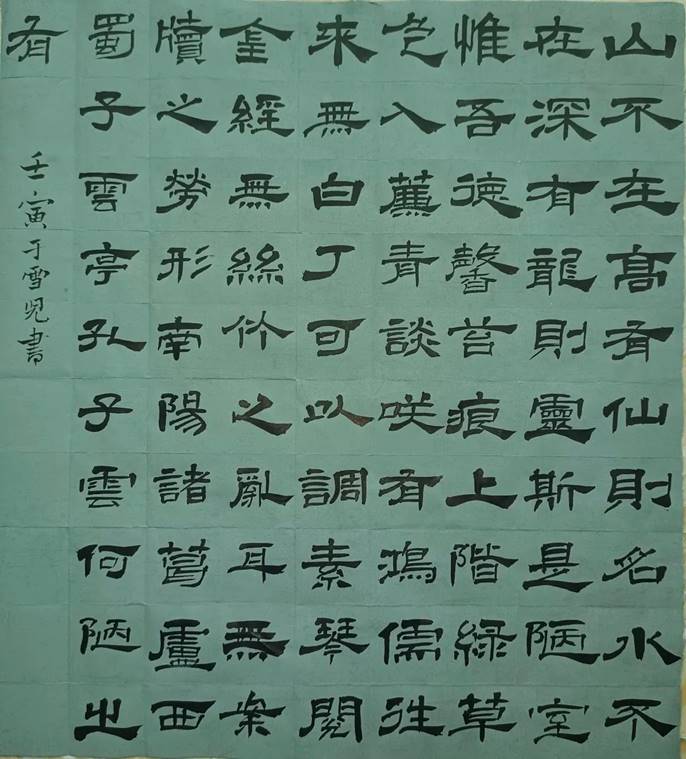 山不在高有仙則名水不
在深有龍則靈斯是陋室
惟吾德馨苔痕上階緑草
色入薕青談咲有鴻儒往
來無白丁可以調素琴閱
金經無絲竹之亂耳無案
牘之勞形南陽諸葛廬西
蜀子雲亭孔子雲何陋之
有
壬寅于雪児書